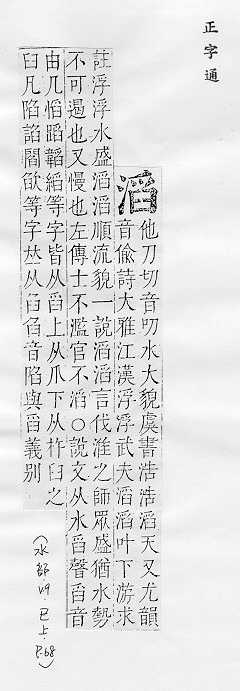 正字通
滔
他刀切音叨水大貌虞書浩浩滔天又尤韻
音偷詩大雅江漢浮浮武夫滔滔叶下游求
註浮浮水盛滔滔順流貌一說滔滔言伐淮之師眾盛猶水勢
不可遏也又慢也左傳士不濫官不滔○說文从水舀聲舀音
由凡慆蹈韜縚等字皆从舀上从爪下从杵臼之
臼凡陷諂閻欿等字𠀤从臽臽音陷與舀義別
(水部.49.巳上.P.68)